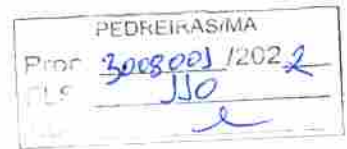 PEDREIRAS/MA
Proc 3008001 /2022
FLS 110